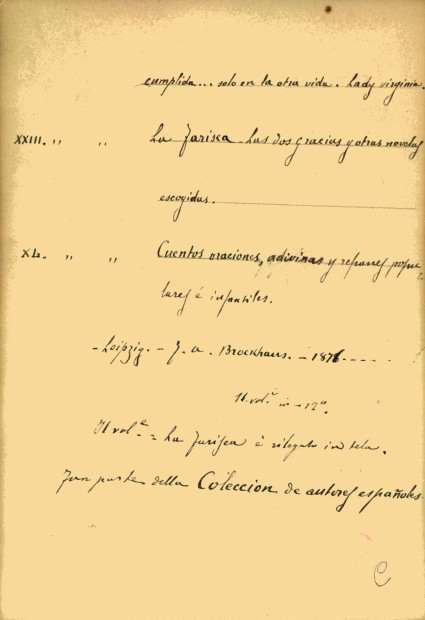 cumplida... solo en la otra vida. Lady virginia.
XXIII. " " La Farisea - Las dos Gracias y otras novelas
escogidas.
XL. " " Cuentos oraciones, adivinas y refranes popu-
lares é infantiles.
- Leipzig. - F. A. Brockhaus. - 1878 - - - -
11. vol.i in - 12º.
Il vol.e = La Farisea è rilegato in tela.
Fan parte della Coleccion de autores españoles.
C